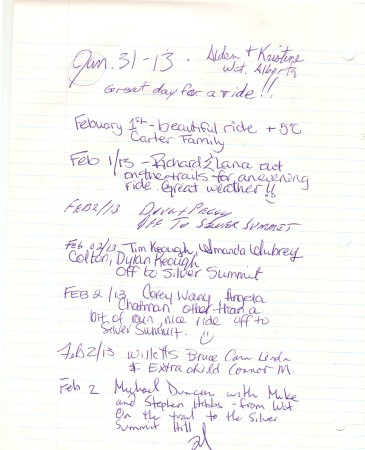 Jan. 31-13 - Aiden + Kristine
Wct. Alberta
Great day for a ride!!
Febuary 1st - beautiful ride +5°C
Carter Family
Feb 1/13 - Richard & Lana out
on the trails for an evening
ride. Great weather!!
FEB 2/13 Doug & Peggy
OFF TO SILVER SUMMIT
Feb. 02/13 - Tim Keough, Amanda
Colton, Dylan Keough
Off to Silver Summit
FEB 2/13 Corey Wang Angela
Chatman other than a
bit of rain, nice ride off to
Silver Summit.
Feb 2/13 Willetts Bruce Cam Linda
& Extra child Connor M
Feb 2 Michael Duncan with Mike
and Stephen Hibbs - from Wct
On the trail to the Silver
Summit Hill